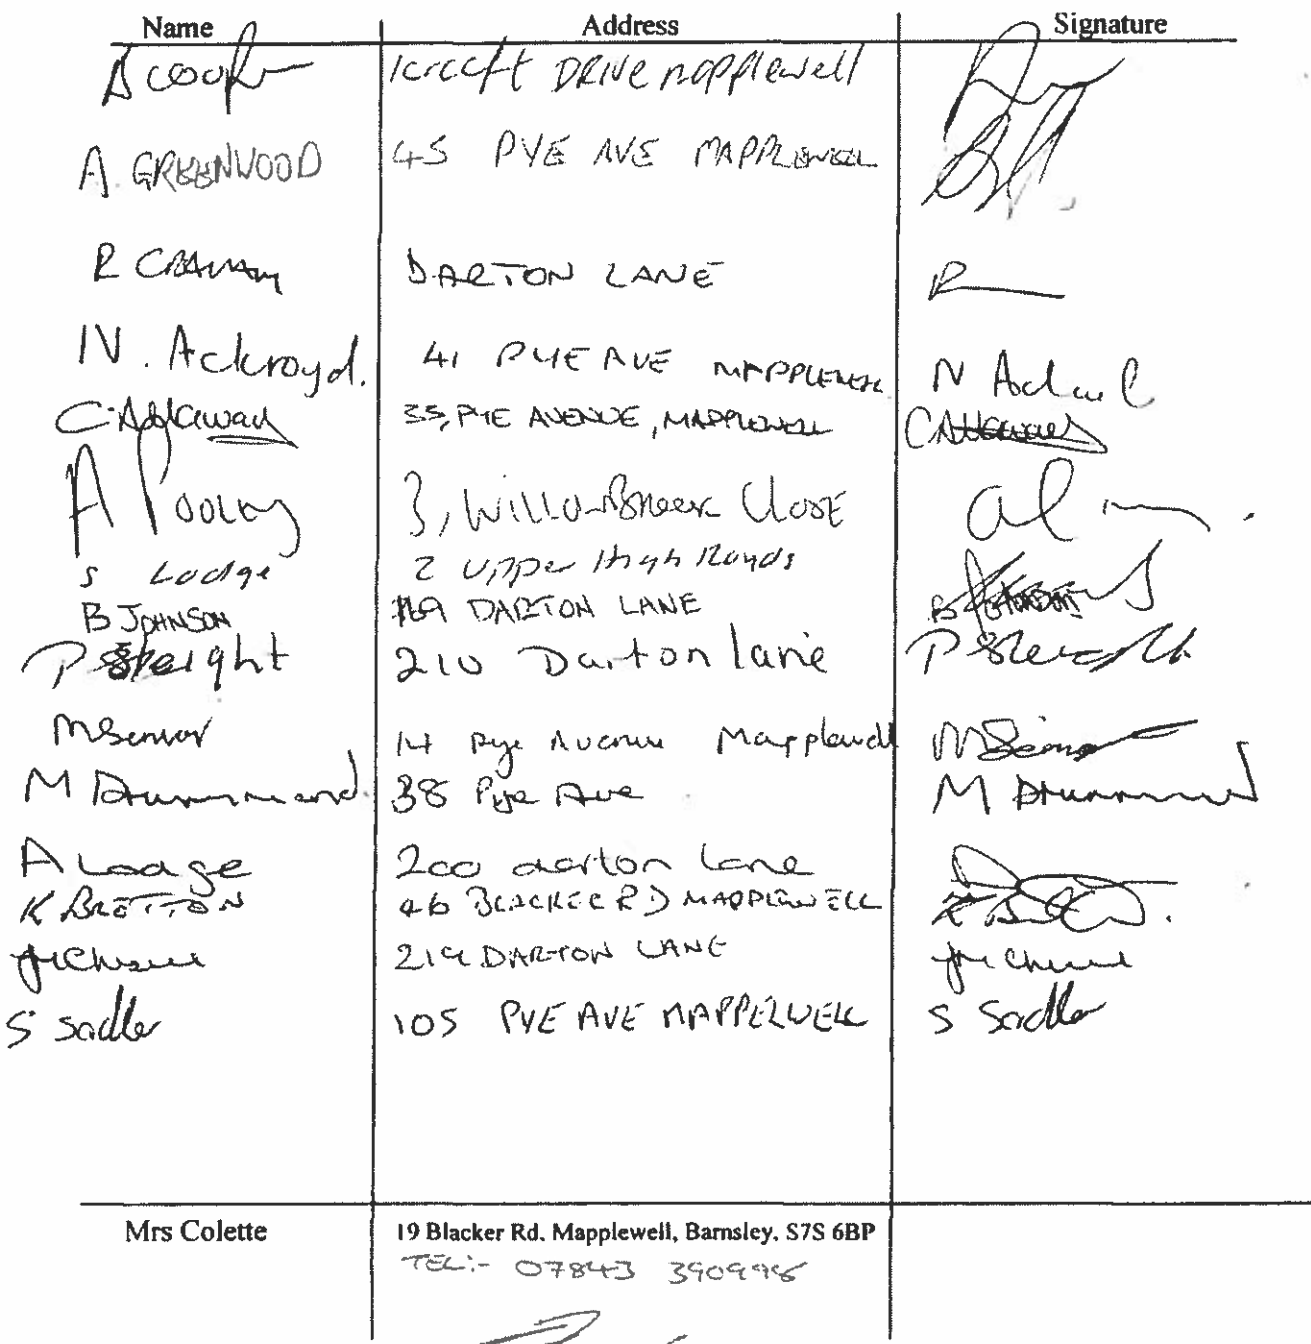 Name Address Signature
A Cooper DRIVE MAPPLEWELL
A. GREENWOOD 45 PYE AVE MAPPLEWELL
R DARTON LANE R
N. Ackroyd. 41 PYE AVE MAPPLEWELL N
C. 35, PYE AVENUE, MAPPLEWELL
A 3, Close
S Lodge 2 Upper High Royds
B JOHNSON 169 DARTON LANE B
P Sleight 210 Darton lane P
M Senior 14 Pye Avenue Mapplewell M Senior
M Drummond. 38 Pye Ave M Drummond
A Lodge 200 darton lane
K BRETTON 46 BLACKER RD MAPPLEWELL
DARTON LANE
S Sadler 105 PYE AVE MAPPELWELL S Sadler
Mrs Colette 19 Blacker Rd. Mapplewell, Barnsley, S75 6BP
TEL:- 07843